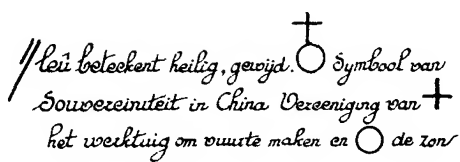 "leû beteekent heilig, gewijd. ♁ Symbool van
Souvereiniteit in China Vereeniging van +
het werktuig om vuurte maken en ◯ de zon